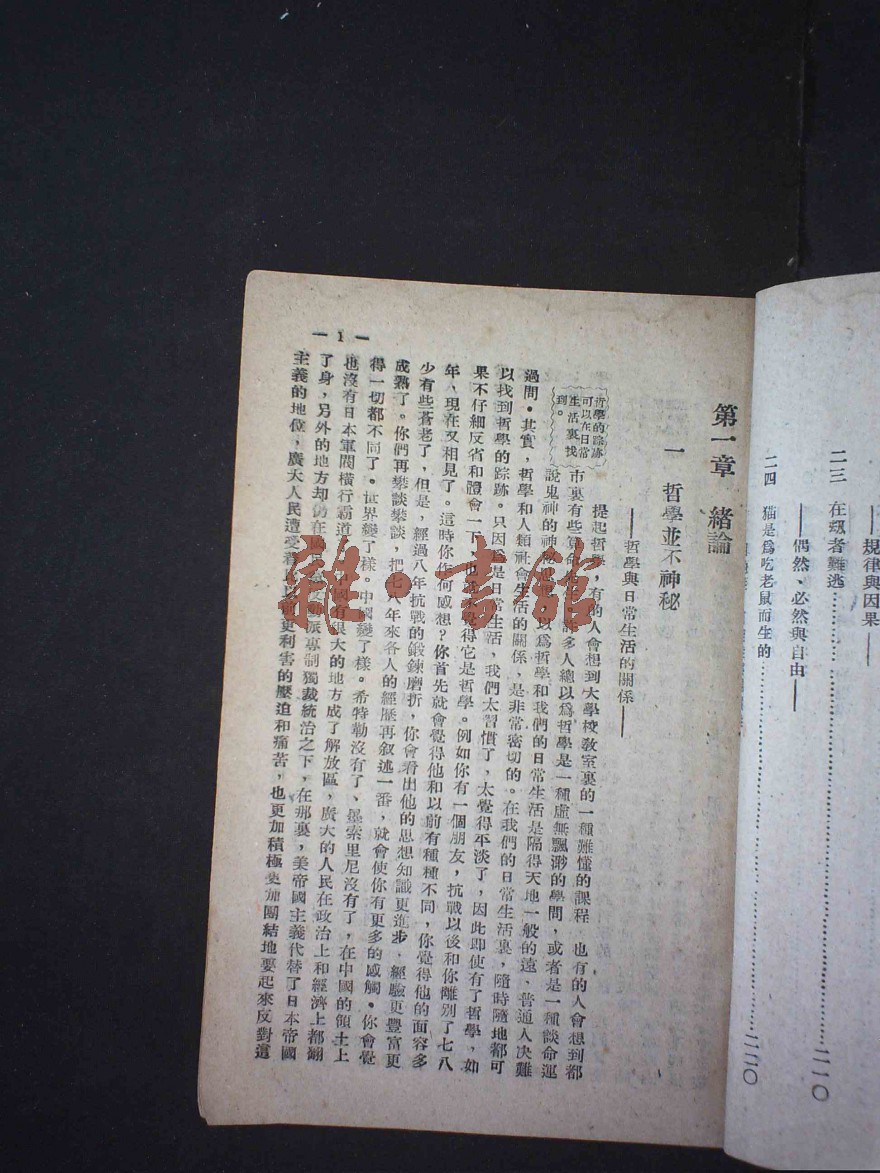 ——規律與因果——
二三 在劫者難逃……二一〇
——偶然、必然與自由——
二四 猫是爲吃老鼠而生的……二二〇
第一章 緒論
一 哲學並不神秘
——哲學與日常生活的關係——
哲學的踪跡
可以在日常
生活裏找
到。
提起哲學，有的人會想到大學校教室裏的一種難懂的課程 也有的人會想到都
市裏有些算命先生 許多人總以爲哲學是一種虛無飄渺的學問，或者是一種談命運
說鬼神的神秘 以爲哲學和我們的日常生活是隔得天地一般的遠、普通人决難
過問。其實，哲學和人類社會生活的關係，是非常密切的。在我們的日常生活裏，隨時隨地都可
以找到哲學的踪跡。只因爲是日常生活，我們太習慣了，太覺得平淡了，因此即使有了哲學，如
果不仔細反省和體會一下，也 覺得它是哲學。例如你有一個朋友，抗戰以後和你離別了七八
年、現在又相見了。這時你作何感想？你首先就會覺得他和以前有種種不同，你覺得他的面容多
少有些蒼老了，但是，經過八年抗戰的鍛鍊磨折，你會看出他的思想知識更進步，經驗更豐富更
成熟了。你們再攀談攀談，把七八年來各人的經歷再叙述一番，就會使你有更多的感觸。你會覺
得一切都不同了。世界變了樣。中國變了樣。希特勒沒有了、墨索里尼沒有了，在中國的領土上
也沒有日本軍閥橫行霸道 中國有很大的地方成了解放區，廣大的人民在政治上和經濟上都翻
了身，另外的地方却仍在國民黨反動派專制獨裁統治之下，在那裏，美帝國主義代替了日本帝國
主義的地位，廣大人民遭受着比以前更利害的壓迫和痛苦，也更加積極更加團結地要起來反對這
— 1 —
雜·書館